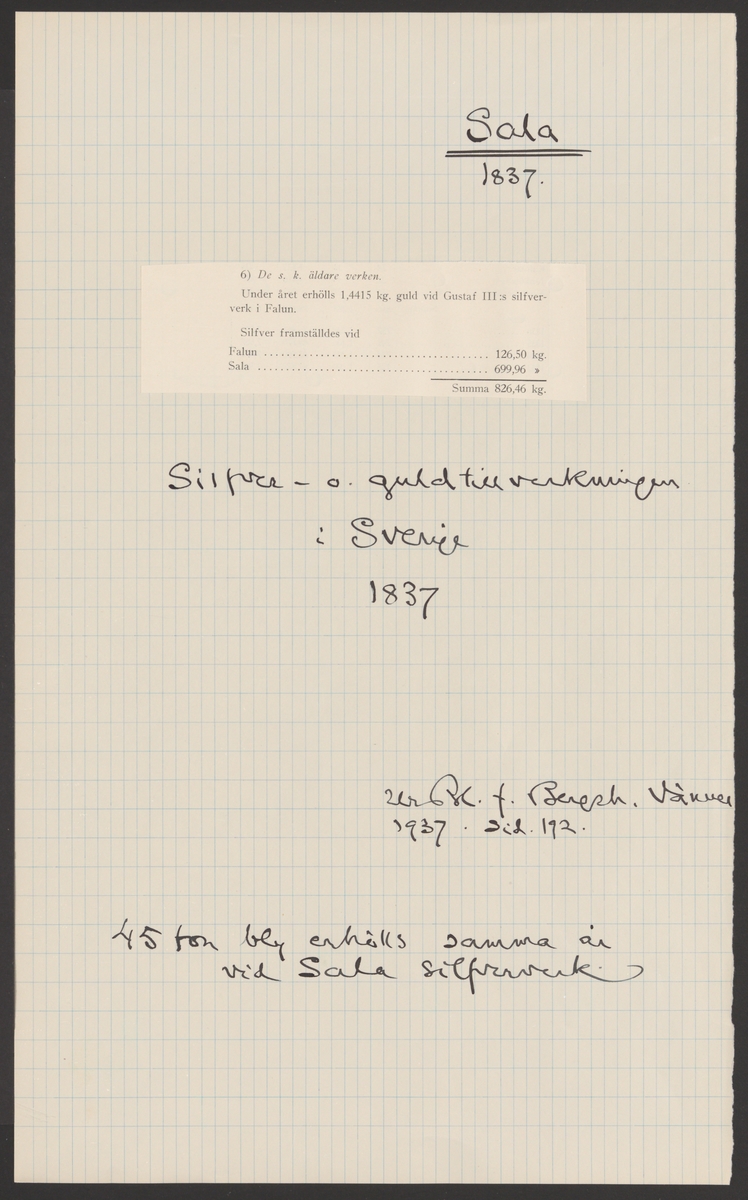 Sala
1837.
6) De s. k. äldare verken.
Under året erhölls 1,4415 kg. guld vid Gustaf III:s silfver-
verk i Falun.
Silfver framställdes vid
Falun ........................................ 126,50 kg.
Sala ........................................ 699,96 »
Summa 826,46 kg.
Silfver- o. guldtillverkningen
i Sverige
1837
Ur Bl. f. Bergsh. Vänner
1937. sid. 192.
45 ton bly erhölls samma år
vid Sala silfververk.